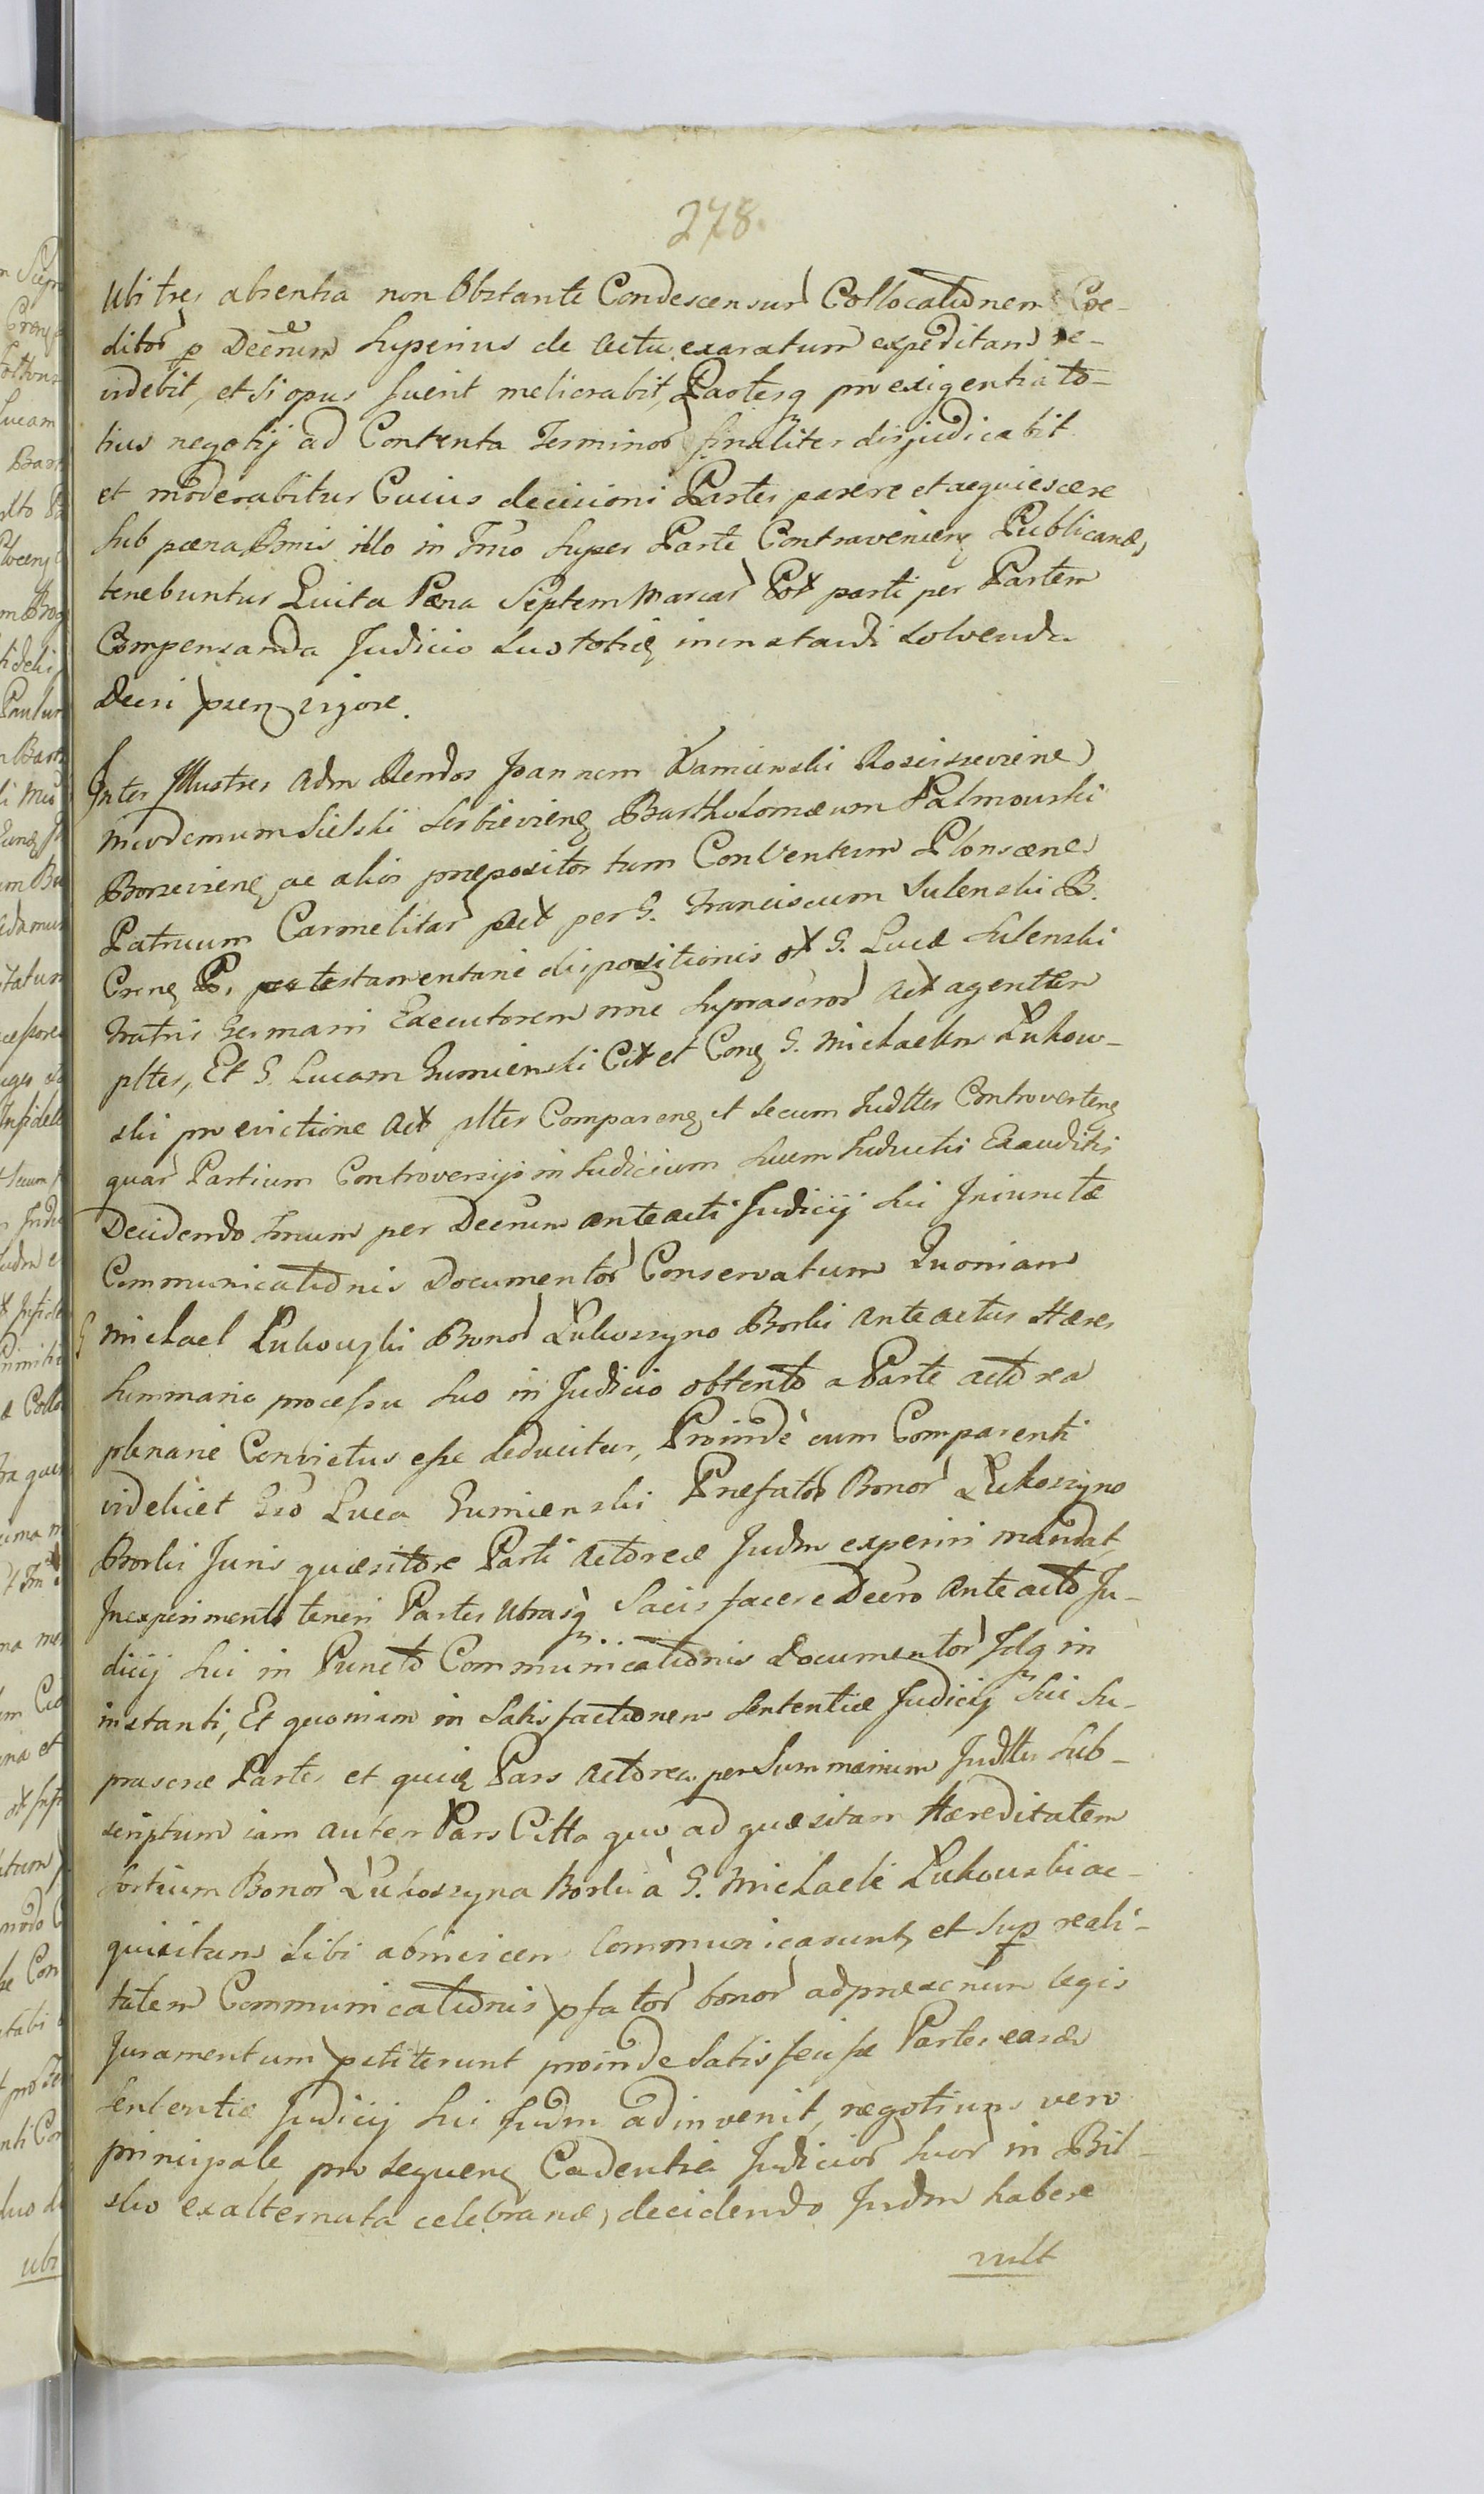 278.
Ubi tres absentia non Obstante Condescensus Collocationem Cre-
ditor p Decrum superius de actu exaratum expeditam re-
videbit, et si opus fuerit meliorabit, Partesq pro exigentia to-
tius negotij ad Contenta Terminor finaliter disjudicabit
et moderabitur Cuius decisioni Partes parere et acquiescere
sub pæna Bonis illo in Tmo super Parte Contravenien Publicand,
tenebuntur Luita Pæna Septem Marcar Pot parti per Partem
Compensanda Judicio solvenda
Decri præn vigore.
Inter Illustres Adm Rendos Joannem Kamienski
Nicodemum Sielski Bartholomæum Palmowski
ac alios præpositos tum Conventum Plonscen
Patruum Carmelitar Act per G. Franciscum Sulenski B.
P. testamentariæ dispositionis ot G. Lucæ Sulenski
Fratris Germani Executorem nne suprascror Act agentem
pltes, Et G. Lucam Gumienski Cit et Con G. Michaelem Lukow-
ski pro evictione Act plter Comparen et secum Judtter Controverten
quar Partium Controversijs in Judicium suum Inductis Exauditis
Decidendo Tmum per Decrum anteacti Judicij sui Iniunctæ
Communicationis Documentor Conservatum Quoniam
G Michael Lukowski Bonor Lukoszyno Borki anteactus Hæres
summario processu suo in Judicio obtento a Parte actorea
plenarie Convictus esse deducitur, Proinde cum Comparenti
videlicet Gso Luca Gumienski Præfator Bonor Lukoszyno
Borki Juris quæsitore Parti Actoreæ Judm experiri mandat,
In experimento teneri Partes Utrasq Sacis facere Decro Anteacto Ju-
dicij sui in Puncto Communicationis Documentor Idq in
instanti, Et quoniam in satisfactionem sententiæ Judicij sui su-
prascræ Partes et quid Pars Actorea per Summarium Judtter sub-
scriptum iam autem Pars Citta quo ad quæsitam Hæreditatem
sortium Bonor Lukoszyna Borki à G. Michaele Lukowski ac-
quisitam sibi abinvicem Communicarunt, et sup reali-
tatem Communicationis pfator bonor ad præscrum legis
Juramentum petiterunt proinde satisfecisse Partes easdem
sententiæ Judicij sui Judm adinvenit, negotium vero
principale pro sequen Cadentia Judicior suor in Biel-
sko exalternata celebrand, decidendo Judm habere
vult